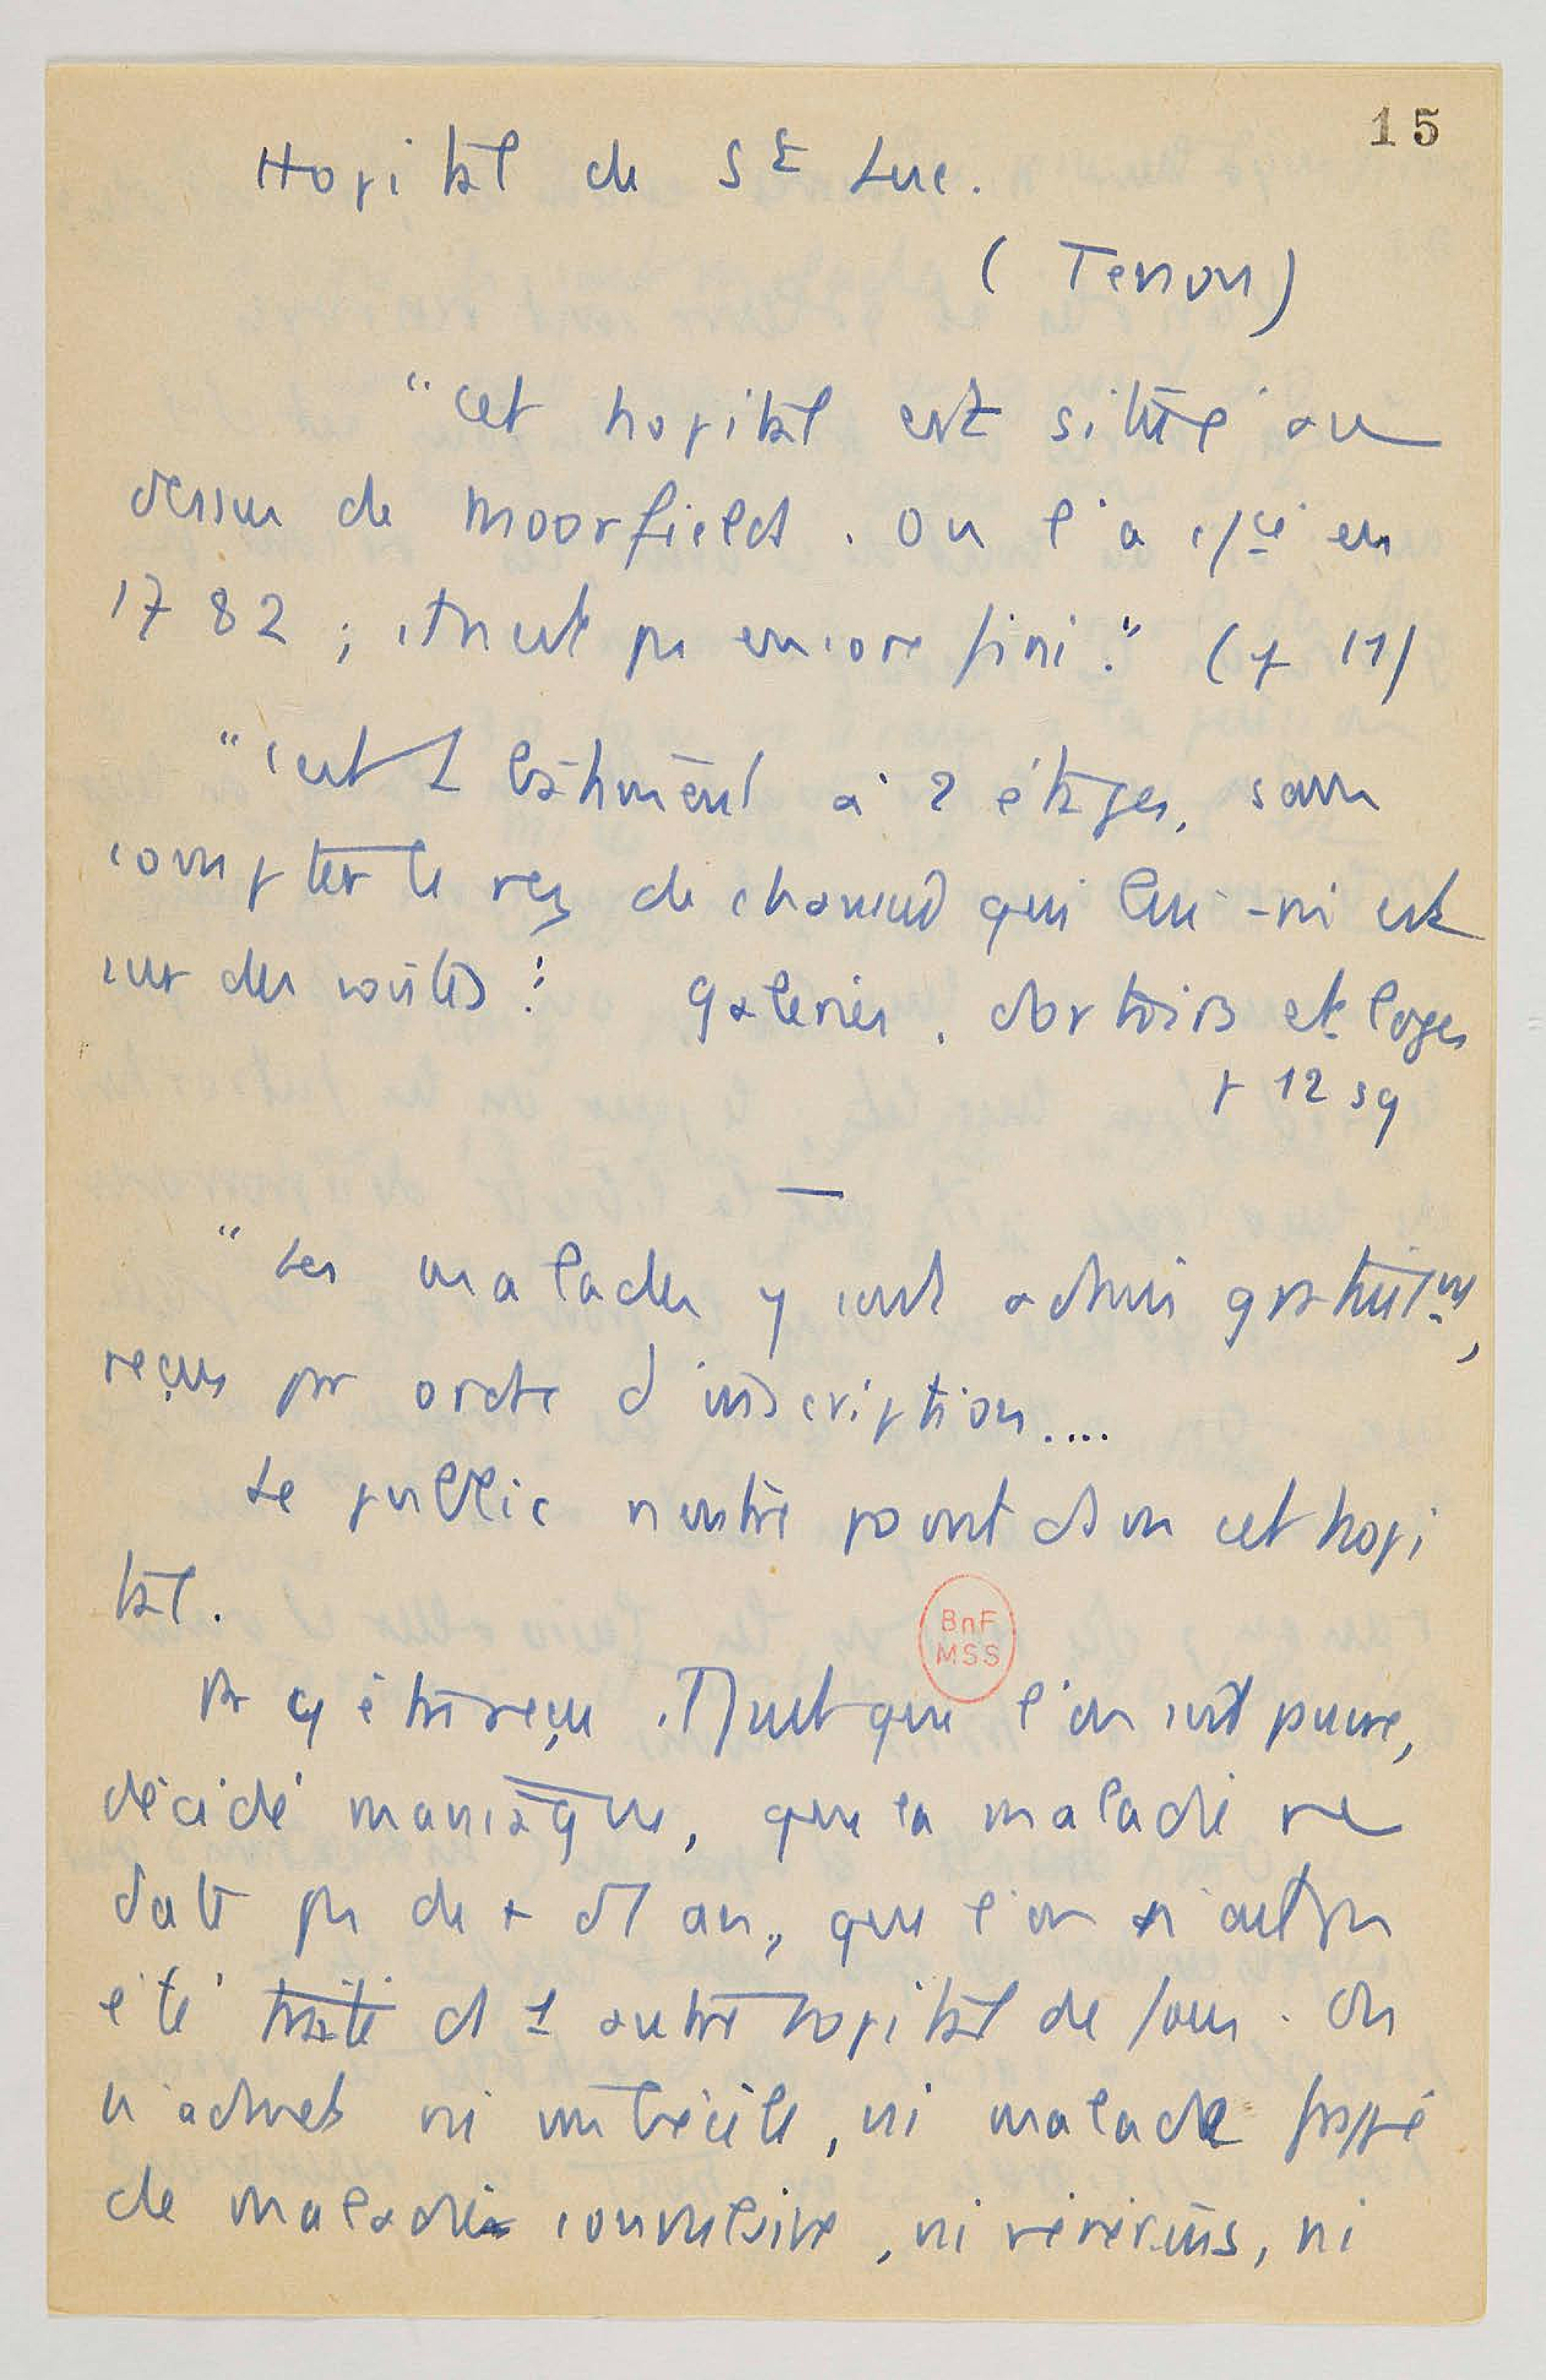 15
Hopital de St Luc.
(Tenon)
"Cet hopital est situé au
dessus de Moorfields. On l'a c/cé en
1782 ; il n'est pas encore fini." (p 11)
"C'est 1 bâtiment à 2 étages, sans
compter le rez de chaussée qui lui-mê est
sur des voûtes : galeries, dortoirs et loges
p 12 sq
—
"Les malades y sont admis gratuitmt,
reçus par ordre d'inscription....
Le public n'entre point dans cet hopi
tal.
Pr y être reçu. Il faut que l'on soit pauvre,
décidé maniaque, que la maladie ne
date pas de + d'1 an, que l'on n'ait pas
été traité ds 1 autre hopital de fous. On
n'admet ni imbécile, ni malade frappé
de maladie convulsive, ni vénériens, ni
BnF
MSS